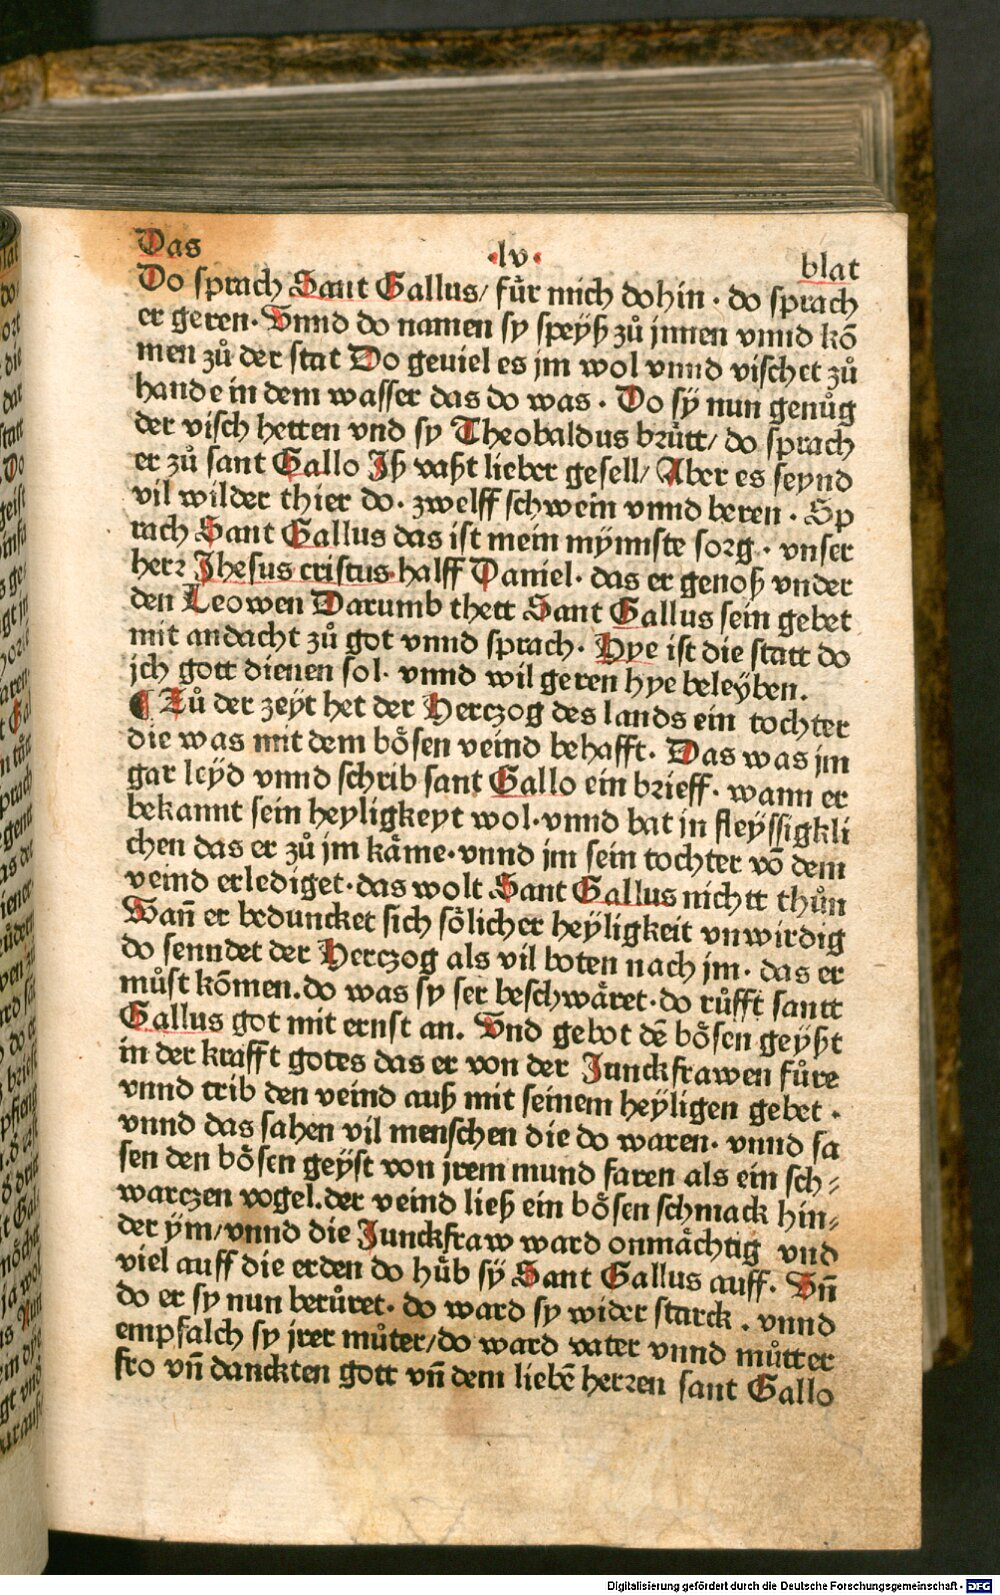 Das ·lv· blat
Do sprach Sant Gallus/ fůr mich dohin · do sprach
er geren· Vnnd do namen sy speyß zů jnnen vnnd kō
men zů der stat Do geviel es jm wol vnnd vischet zů
hande in dem wasser das do was · Do sÿ nun genůg
der visch hetten vnd sy Theobaldus brůtt/ do sprach
er zů sant Gallo Jß vaßt lieber gesell/ Aber es seynd
vil wilder thier do· zwelff schwein vnnd beren · Sp
rach Sant Gallus das ist mein mÿnnste sorg · vnser
herr Jhesus cristus·halff Daniel· das er genoß vnder
den Leowen Darumb thett Sant Gallus sein gebet
mit andacht zů got vnnd sprach· Hye ist die statt do
jch gott dienen sol· vnnd wil geren hye beleÿben.
¶ Zů der zeÿt het der Herczog des lands ein tochter
die was mit dem bösen veind behafft· Das was jm
gar leÿd vnnd schrib sant Gallo ein brieff· wann er
bekannt sein heyligkeyt wol·vnnd bat in fleÿssigkli
chen das er zů jm käme·vnnd jm sein tochter vō dem
veind erlediget·das wolt Sant Gallus nichtt thůn
Wañ er beduncket sich sölicher heÿligkeit vnwirdig
do senndet der Herczog als vil boten nach jm· das er
můst kōmen.do was sy ser beschwäret·do růfft santt
Gallus got mit ernst an. Vnd gebot dē bösen geÿßt
in der krafft gotes das er von der Junckfrawen fůre
vnnd trib den veind auß mit seinem heÿligen gebet ·
vnnd das sahen vil menschen die do waren· vnnd sa
sen den bösen geÿst von jrem mund faren als ein sch⸗
warczen vogel.der veind ließ ein bösen schmack hin⸗
der ÿm/vnnd die Junckfraw ward onmächtig vnd
viel auff die erden do hůb sÿ Sant Gallus auff· Vñ
do er sy nun berůret· do ward sy wider starck . vnnd
empfalch sy jrer můter/do ward vater vnnd můtter
fro vñ danckten gott vñ dem liebē herren sant Gallo
Digitalisierung gefördert durch die Deutsche Forschungsgemeinschaft · DFG